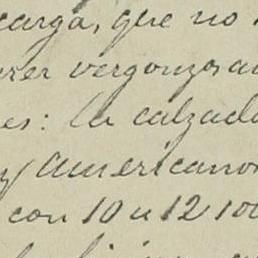 carga, que no
rer vergonzosa
es: la calzada
y americano
con 10 u 12 10